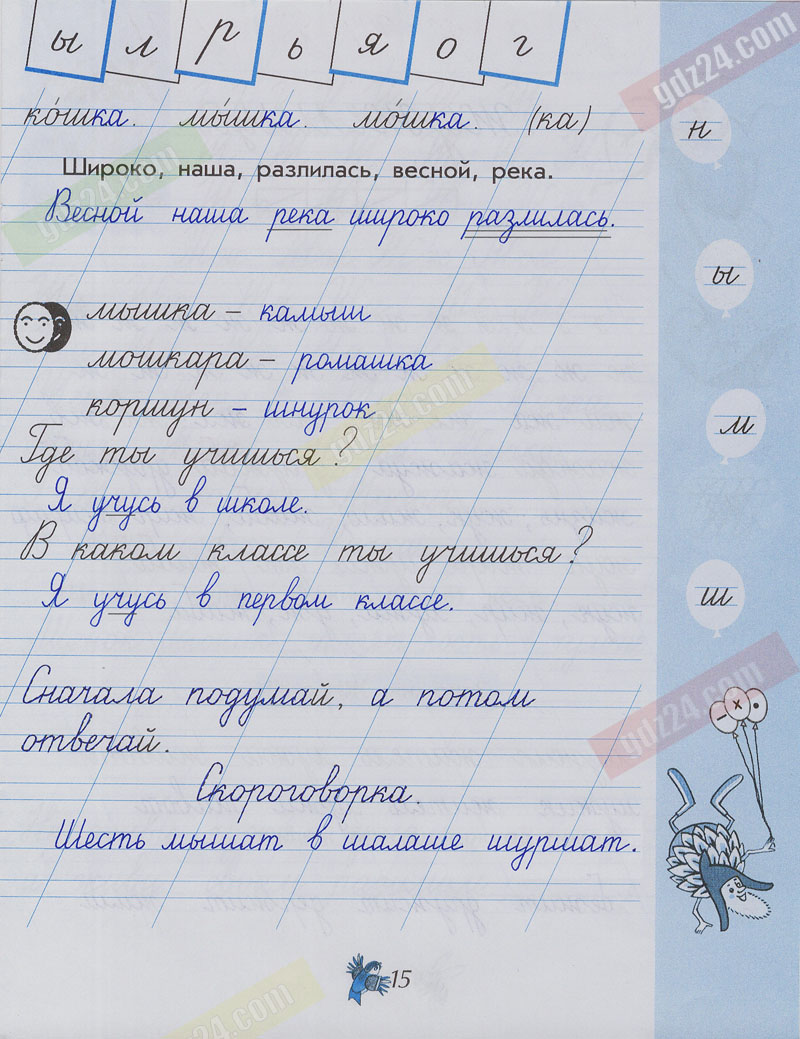 ы л р ь я о г
ко́шка. мы́шка. мо́шка. (ка)
н
Широко, наша, разлилась, весной, река.
Весной наша река широко разлилась.
ы
мышка – камыш
мошкара – ромашка
коршун – шнурок
м
Где ты учишься?
Я учусь в школе.
В каком классе ты учишься?
Я учусь в первом классе.
ш
Сначала подумай, а потом
отвечай.
Скороговорка.
Шесть мышат в шалаше шуршат.
15
gdz24.com
gdz24.com
gdz24.com
gdz24.com
gdz24.com